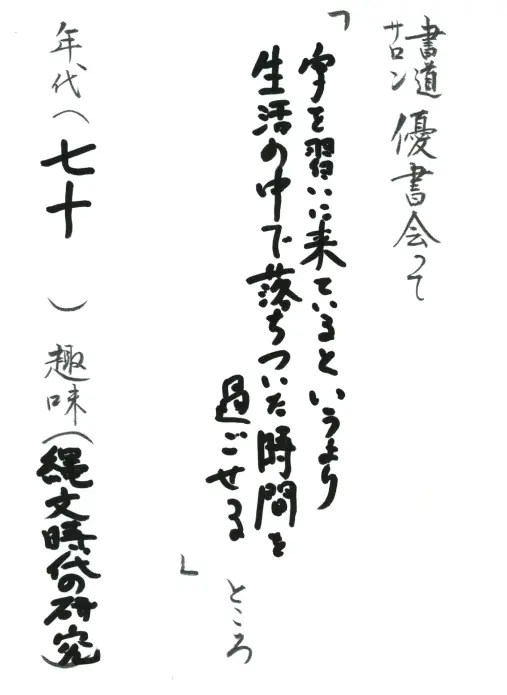 書道
サロン 優書会って
「字を習いに来ているというより
生活の中で落ちついた時間を
過ごせる」ところ
年代(七十) 趣味(縄文時代の研究)